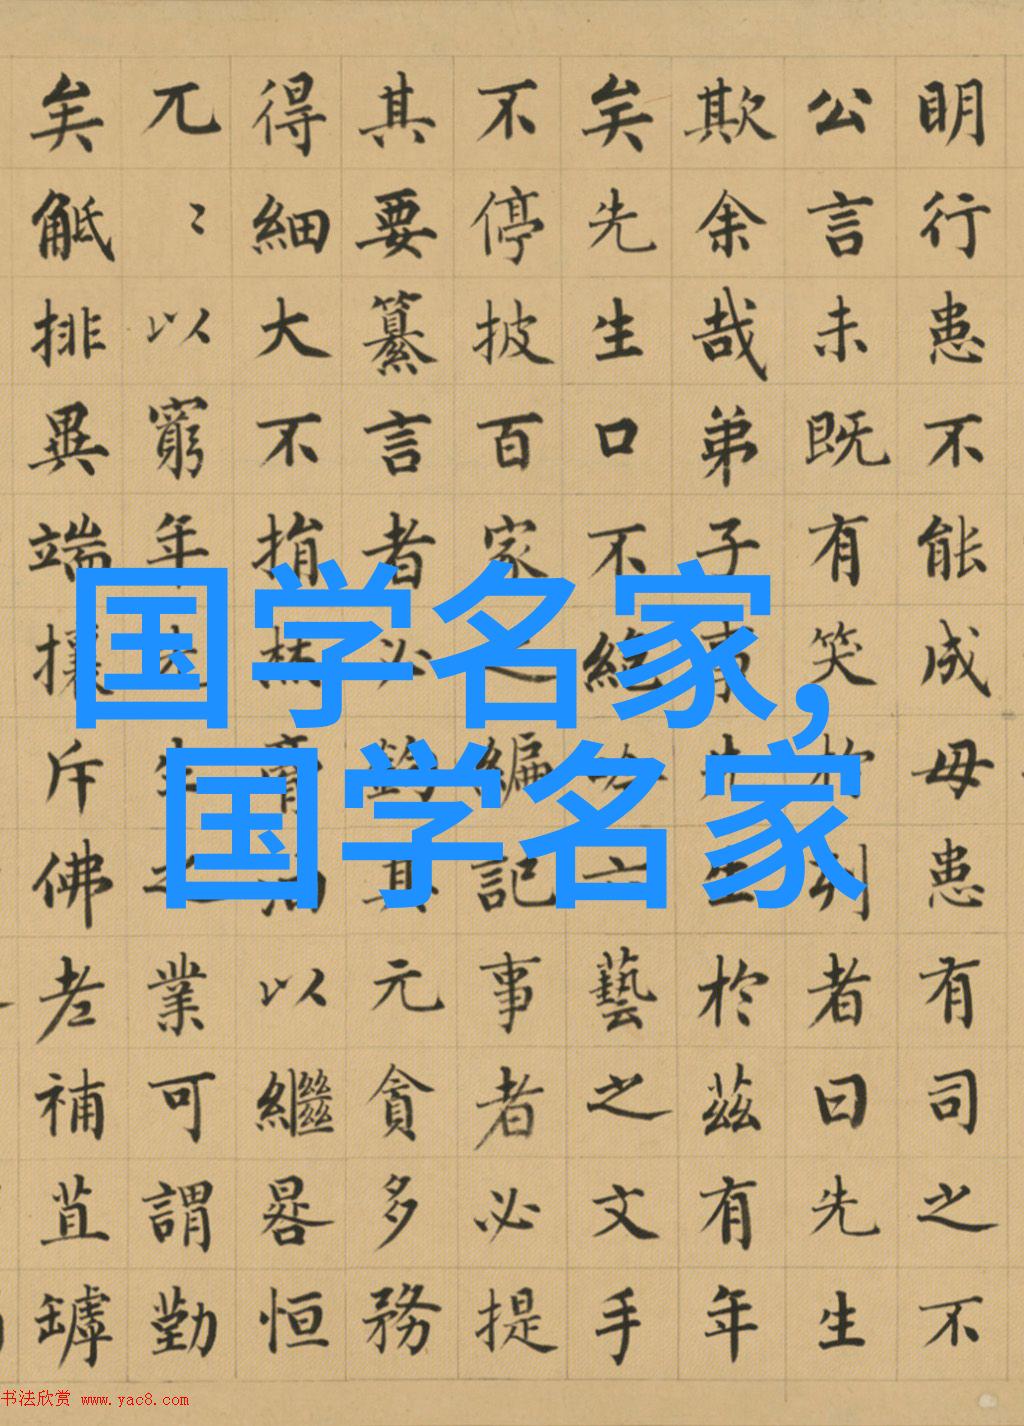 明行患不能成毋患有司之不
公言未既有笑於列者曰先生
欺余哉弟子事先生於茲有年
矣先生口不絕吟六藝之文手
不停披百家之編記事者必提
其要纂言者必鉤其元貪多務
得細大不捐焚膏油以繼晷恒
兀〻以窮年先生之業可謂勤
矣觝排異端攘斥佛老補苴罅
国学名家,
国学名家
书法欣赏 www.yac8.com